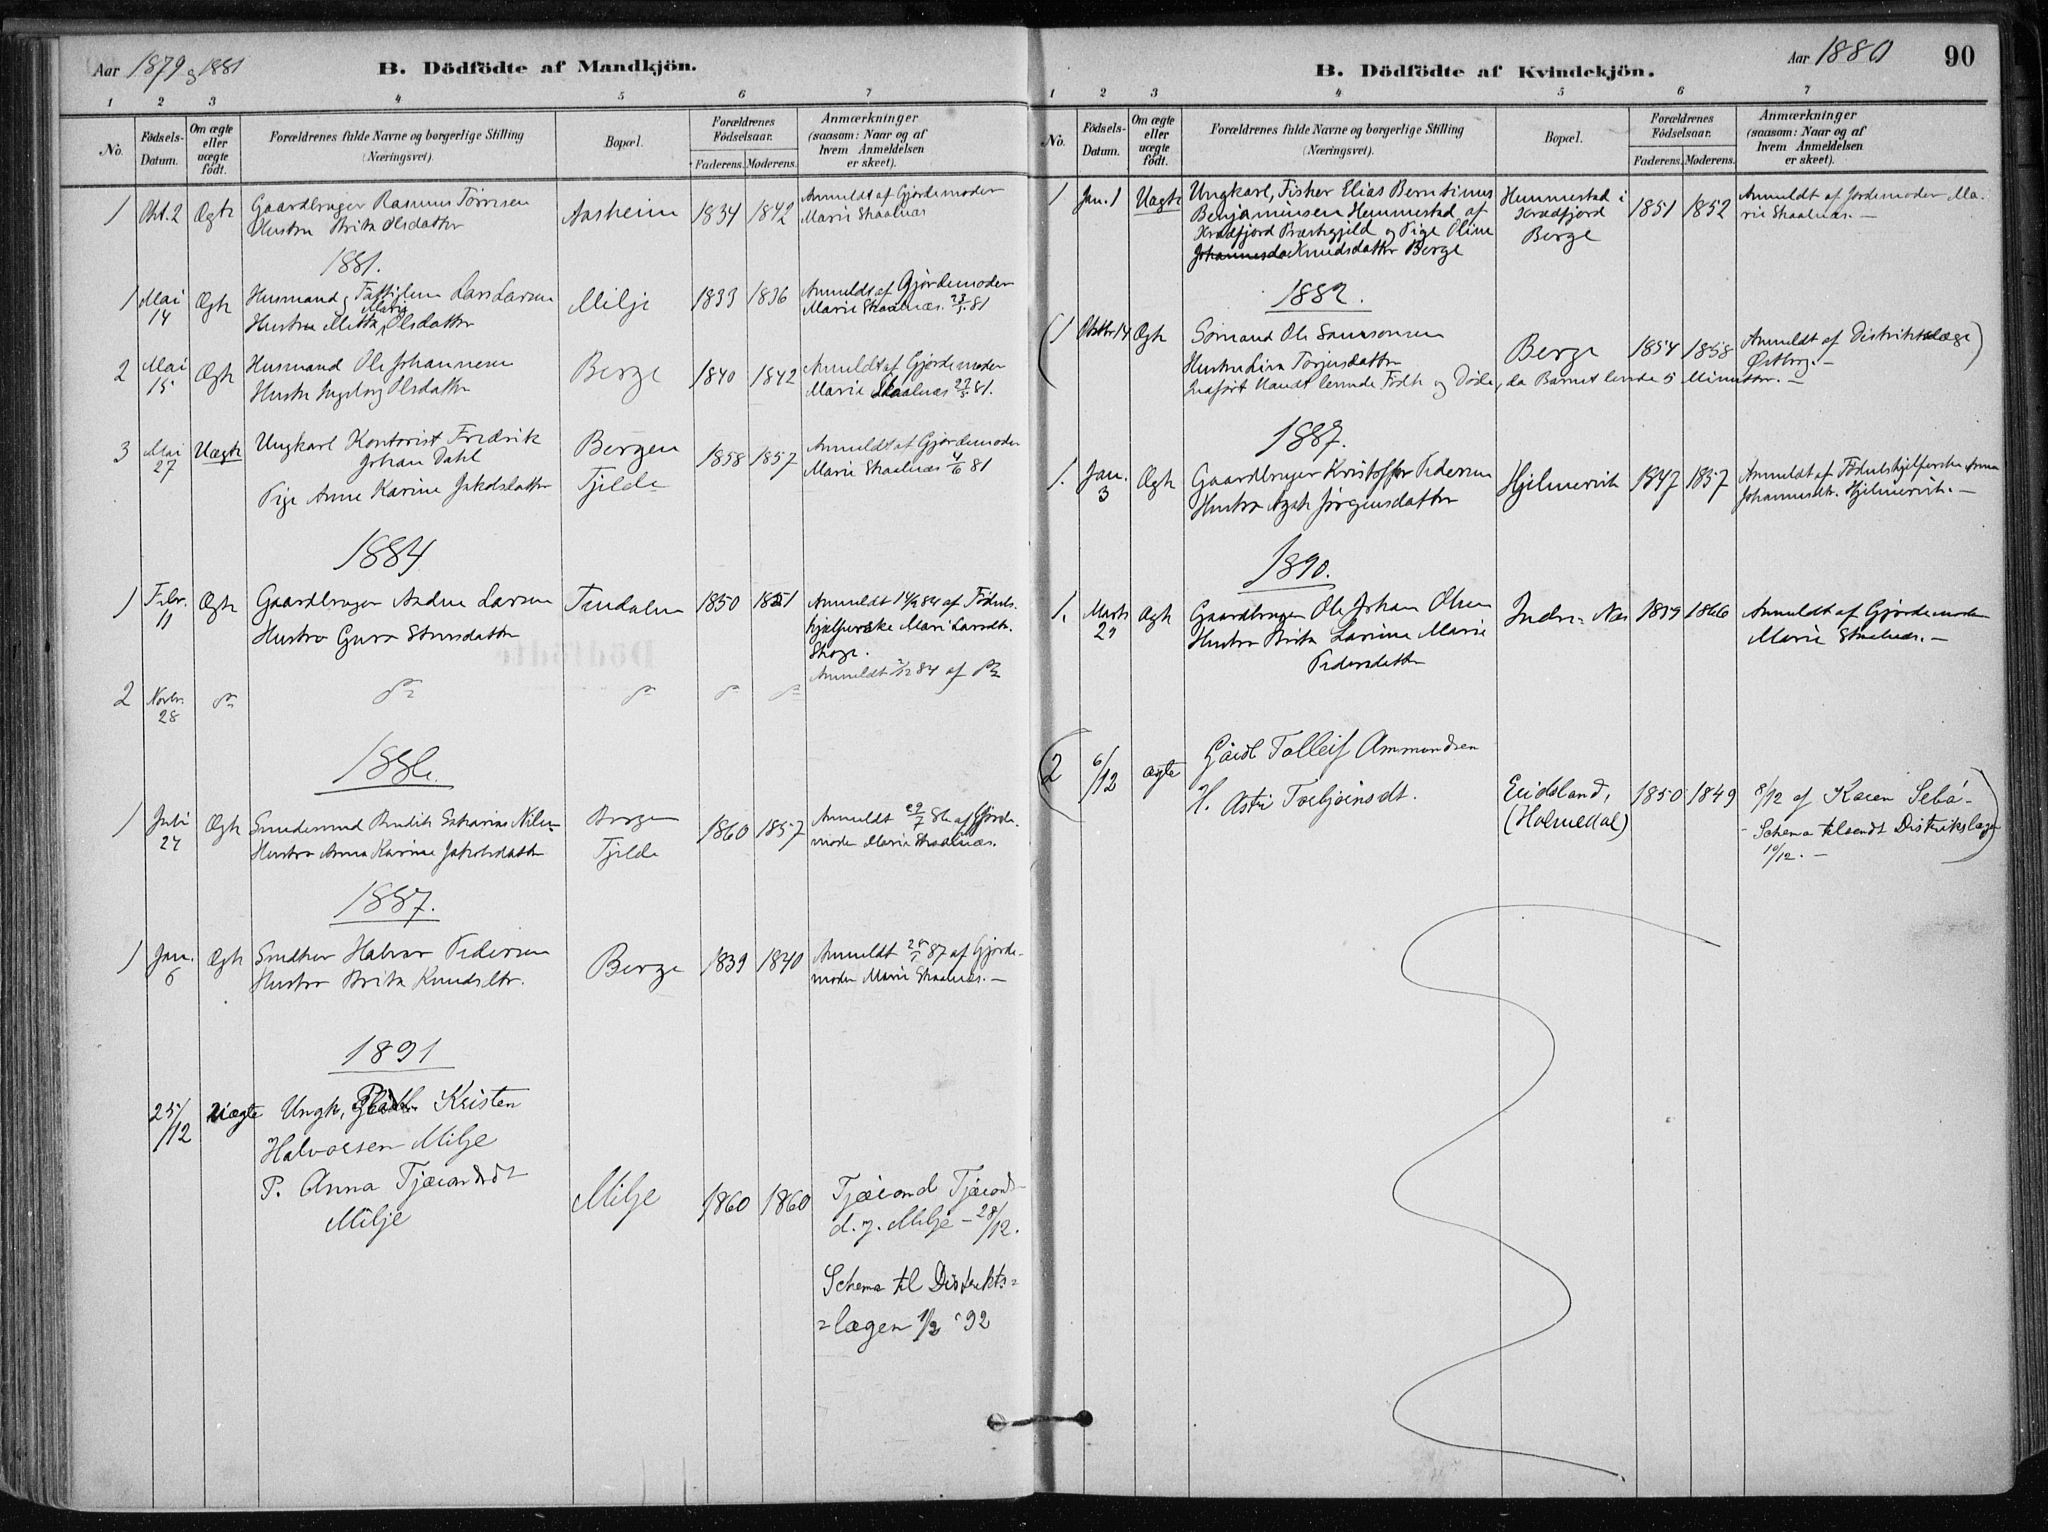 Aar 1879 og 1881
B. Dödfödte af Mandkjön.
1 2 3 4 5 6 7
No.
Födsels-
Datum.
Om ægte
eller
uægte
födt.
Forældrenes fulde Navne og borgerlige Stilling
(Næringsvei).
Bopæl.
Forældrenes
Födselsaar.
Faderens. Moderens.
Anmærkninger
(saasom: Naar og af
hvem Anmeldelsen
er skeet).
1 Okt. 2 Ægte Gaardbruger Rasmus Aasheim 1834 1842 Anmeldt af Gjordemoder
Hustru Brita Olsdatter Marie Skaalnæs
1881.
1 Mai 14 Ægte Husmand og Lars Larsen Milje 1833 1836 Anmeldt af Gjordemoder
Hustru Metta Maria Olsdatter Marie Skaalnæs 23/5 81
2 Mai 15 Ægte Husmand Ole Johannesen Berge 1840 1842 Anmeldt af Gjordemoder
Hustru Ingeborg Olsdatter Marie Skaalnæs 27/5 81.
3 Mai 27 Uægte Ungkarl Kontorist Fredrik Bergen 1858 1857 Anmeldt af Gjordemoder
Johan Dahl Marie Skaalnæs 4/6 81
Pige Anne Karine Jakobsdatter Tjelde
1884
1 Febr. 11 Ægte Gaardbruger Andrew Larsen 1850 1851 Anmeldt 14/2 84 af Fødsels-
Hustru Guro Sjursdatter hjælperske Mari Larsdtr.
Skoge.
Anmeldt 2/12 84 af Do
2 Novbr. 28 Do Do Do Do Do
1886.
1 Juli 24 Ægte Smedesvend Zakarias Nilsen Bergen 1860 1857 Anmeldt 29/7 86 af Gjorde-
Hustru Anna Karine Jakobsdatter Tjelde moder Marie Skaalnæs.
1887.
1 Jan. 6 Ægte Halvor Pedersen Berge 1839 1840 Anmeldt 28/1 87 af Gjorde-
Hustru Brita Knudsdtr. moder Marie Skaalnæs. —
1891
25/12 Uægte Ungk. Kristen
Halvorsen Milje
P. Anna Tjærandsdt Milje 1860 1860 Tjærand Tjærands-
Milje d. y. Milje – 28/12.
Schema til Distrikts=
=lægen 1/2 '92
Aar 1880 90
B. Dödfödte af Kvindekjön.
1 2 3 4 5 6 7
No.
Födsels-
Datum.
Om ægte
eller
uægte
födt.
Forældrenes fulde Navne og borgerlige Stilling
(Næringsvei).
Bopæl.
Forældrenes
Födselsaar.
Faderens. Moderens.
Anmærkninger
(saasom: Naar og af
hvem Anmeldelsen
er skeet).
1 Jan. 1 Uægte Ungkarl, Fisker Elias Berntinus Hemmestad i 1851 1852 Anmeldt af Jordemoder Ma-
Benjaminsen Hemmestad af Kvædfjord rie Skaalnæs. —
Kvædfjord Præstegjeld og Pige Oline Berge
Johannesda Knudsdatter Berge
1882.
(1 Oktbr. 14 Ægte Sømand Ole Samsonsen Berge 1854 1858 Anmeldt af Distriktslæge)
Hustru Lina Torjersdatter Østberg. —
Indført blandt levende Fødte og Døde, da Barnet levede 5 Minutter. —
1887.
1. Jan. 3 Ægte Gaardbruger Kristoffer Pedersen Hjelmervik 1847 1857 Anmeldt af Fødselshjelperske Anna
Hustru Agate Jørgensdatter Johannesdtr. Hjelmervik. —
1890.
1. Marts Ægte Gaardbruger Ole Johan Olsen Indre Næs 1859 1866 Anmeldt af Gjordemoder
Hustru Brita Larine Marie Marie Skaalnæs. —
Pedersdatter
(2 6/12 ægte Gårdb Tolleif Ammundsen
H. Astri Torbjørnsdt. Eidsland, 1850 1849 8/12 af Karen Sebø –
(Holmedal) – Schema tilsendt Distriktslægen)
10/12. —